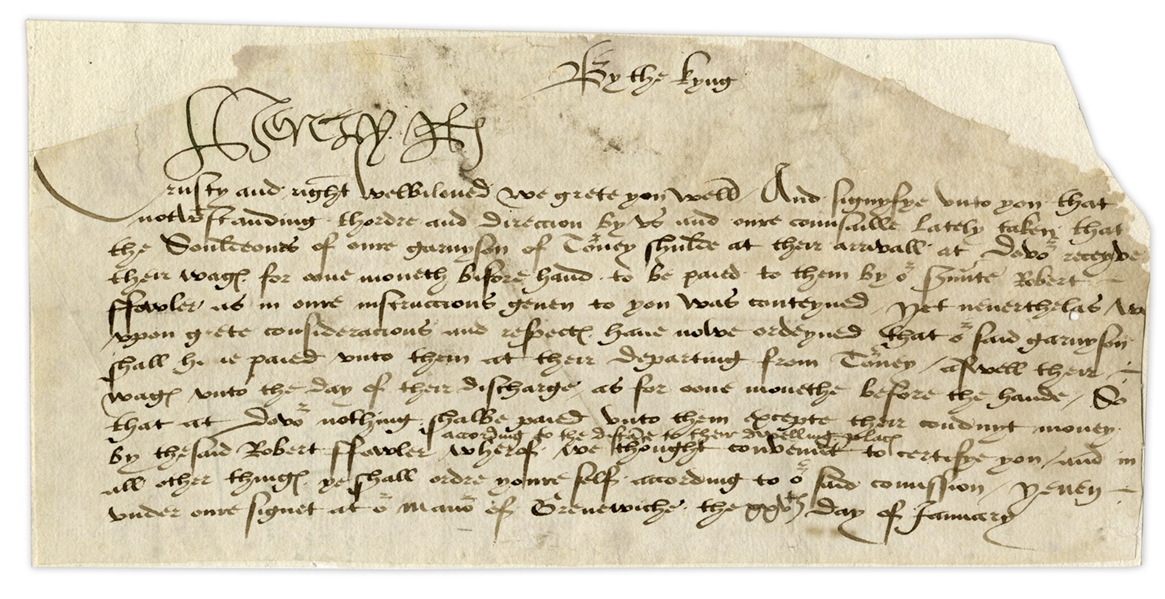 By the kyng
Henry R
Trusty and right welbiloued we grete you well And signyfye vnto you that
notwtstanding thordre and direccion by vs and oure counsaille lately taken that
the Souldeours of oure garnyson of Torney shulde at their arrivall at Dovor receyve
their wages for oone moneth before hand to be paied to them by or Srunte Robert
ffowler as in oure instruccions geuen to you was conteyned yet neuertheles we
vpon grete consideracions and respectes haue nowe ordeyned that or said garnyson
shall haue paied vnto them at their departing from Torney / aswell their
wages vnto the day of their discharge as for oone monethe before the hande / So
that at Dovor nothing shalbe paied vnto them excepte their conduyt money
according to the distaunce to their dwelling places
by thesaid Robert ffowler wherof we thought convenient to certifye you / and in
all other thinges ye shall ordre youre self according to or said comission / yeuen
vnder oure signet at or Manor of Grenewiche the xxvth day of January